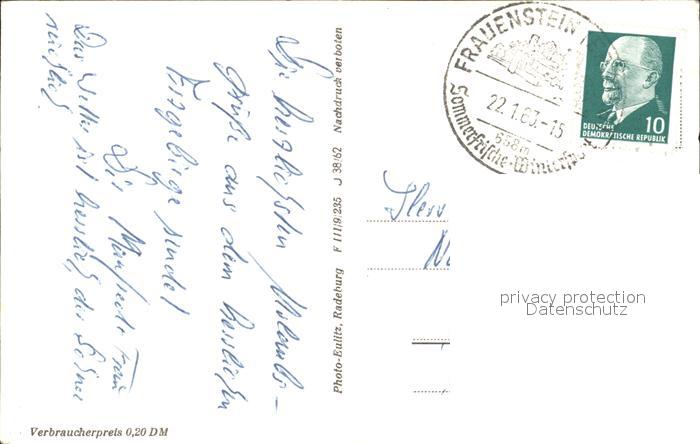 Die herzlichsten Urlaubs-
grüße aus dem herrlichen
Erzgebirge sendet
Die
Frau
Das Wetter ist herrlich der Schnee
Verbraucherpreis 0,20 DM
Photo-Eulitz, Radeburg F III/9/235 J 38/62 Nachdruck verboten
FRAUENSTEIN
22.1.63.-15
Sommerfrische-Winterspo
10
DEUTSCHE
DEMOKRATISCHE REPUBLIK
Herr
privacy protection
Datenschutz